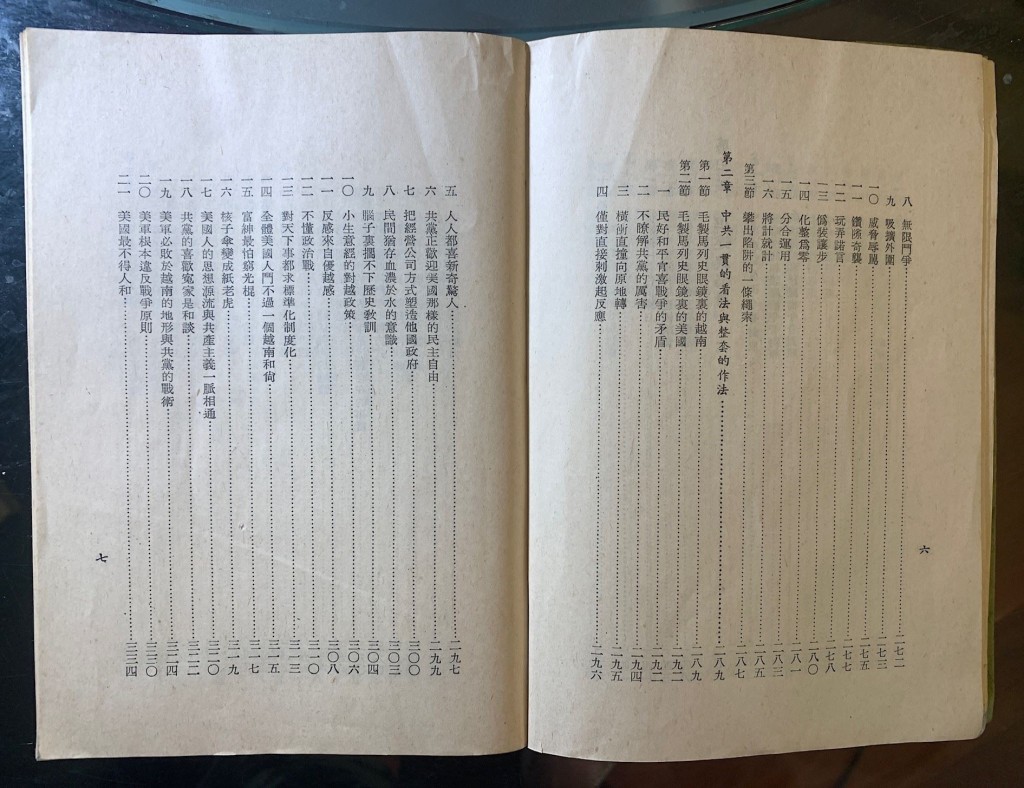 八 無限鬥爭……二七二
九 吸擴外圍……二七三
一〇 威脅辱罵……二七五
一一 鑽隙奇襲……二七七
一二 玩弄諾言……二七八
一三 僞裝讓步……二八〇
一四 化整爲零……二八一
一五 分合運用……二八三
一六 將計就計……二八五
第三節 攀出陷阱的一條繩索……二八七
第二章 中共一貫的看法與整套的作法……二八九
第一節 毛製馬列史眼鏡裏的越南……二八九
第二節 毛製馬列史眼鏡裏的美國……二九二
一 民好和平官喜戰爭的矛盾……二九二
二 不瞭解共黨的厲害……二九四
三 橫衝直撞向原地轉……二九五
四 僅對直接刺激起反應……二九六
六
五 人人都喜新奇驚人……二九七
六 共黨正歡迎美國那樣的民主自由……二九九
七 把經營公司方式塑造他國政府……三〇〇
八 民間猶存血濃於水的意識……三〇三
九 腦子裏擱不下歷史教訓……三〇四
一〇 小生意經的對越政策……三〇六
一一 反感來自優越感……三〇八
一二 不懂政治戰……三一〇
一三 對天下事都求標準化制度化……三一三
一四 全體美國人鬥不過一個越南和尙……三一五
一五 富紳最怕窮光棍……三一七
一六 核子傘變成紙老虎……三一九
一七 美國人的思想源流與共產主義一脈相通……三二〇
一八 共黨的喜歡寃家是和談……三二二
一九 美軍必敗於越南的地形與共黨的戰術……三二四
二〇 美軍根本違反戰爭原則……三三〇
二一 美國最不得人和……三三四
七